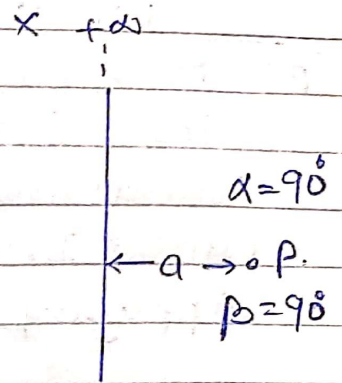 x +∞
α=90°
a P.
β=90°